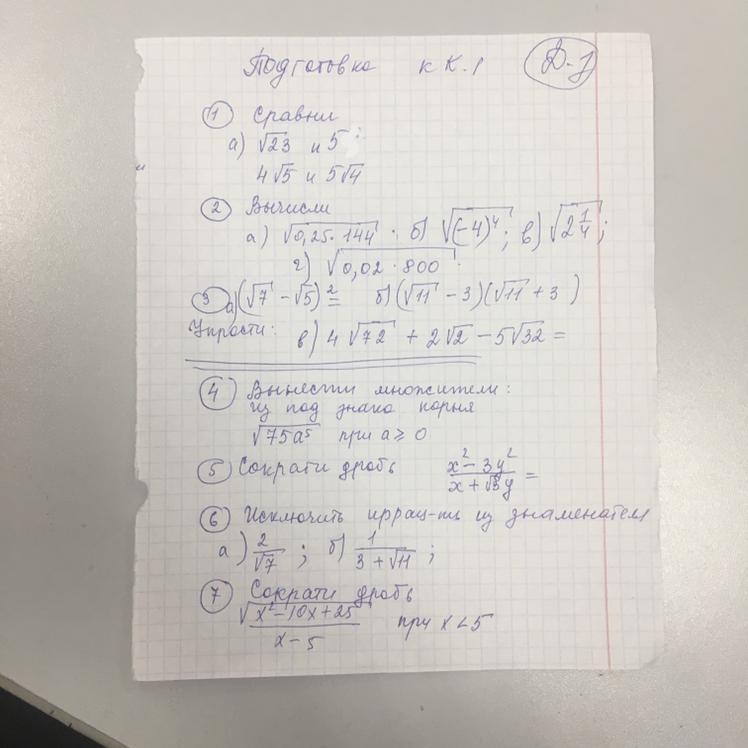 Подготовка к К.1 Д-З
1 Сравни
а) √23 и 5
4√5 и 5√4
2 Вычисли
а) √0,25·144 · б) √(-4)⁴; в) √2 1/4;
г) √0,02·800.
3 а) (√7 - √5)² = б) (√11 - 3)(√11 + 3)
Упрости: в) 4√72 + 2√2 - 5√32 =
4 Вынести множители:
из под знака корня
√75a⁵ при a ≥ 0
5 Сократи дробь (x² - 3y²)/(x + √3y) =
6 Исключить иррац-ть из знаменател
а) 2/√7 ; б) 1/(3 + √11) ;
7 Сократи дробь
√(x² - 10x + 25)/(x - 5) при x < 5